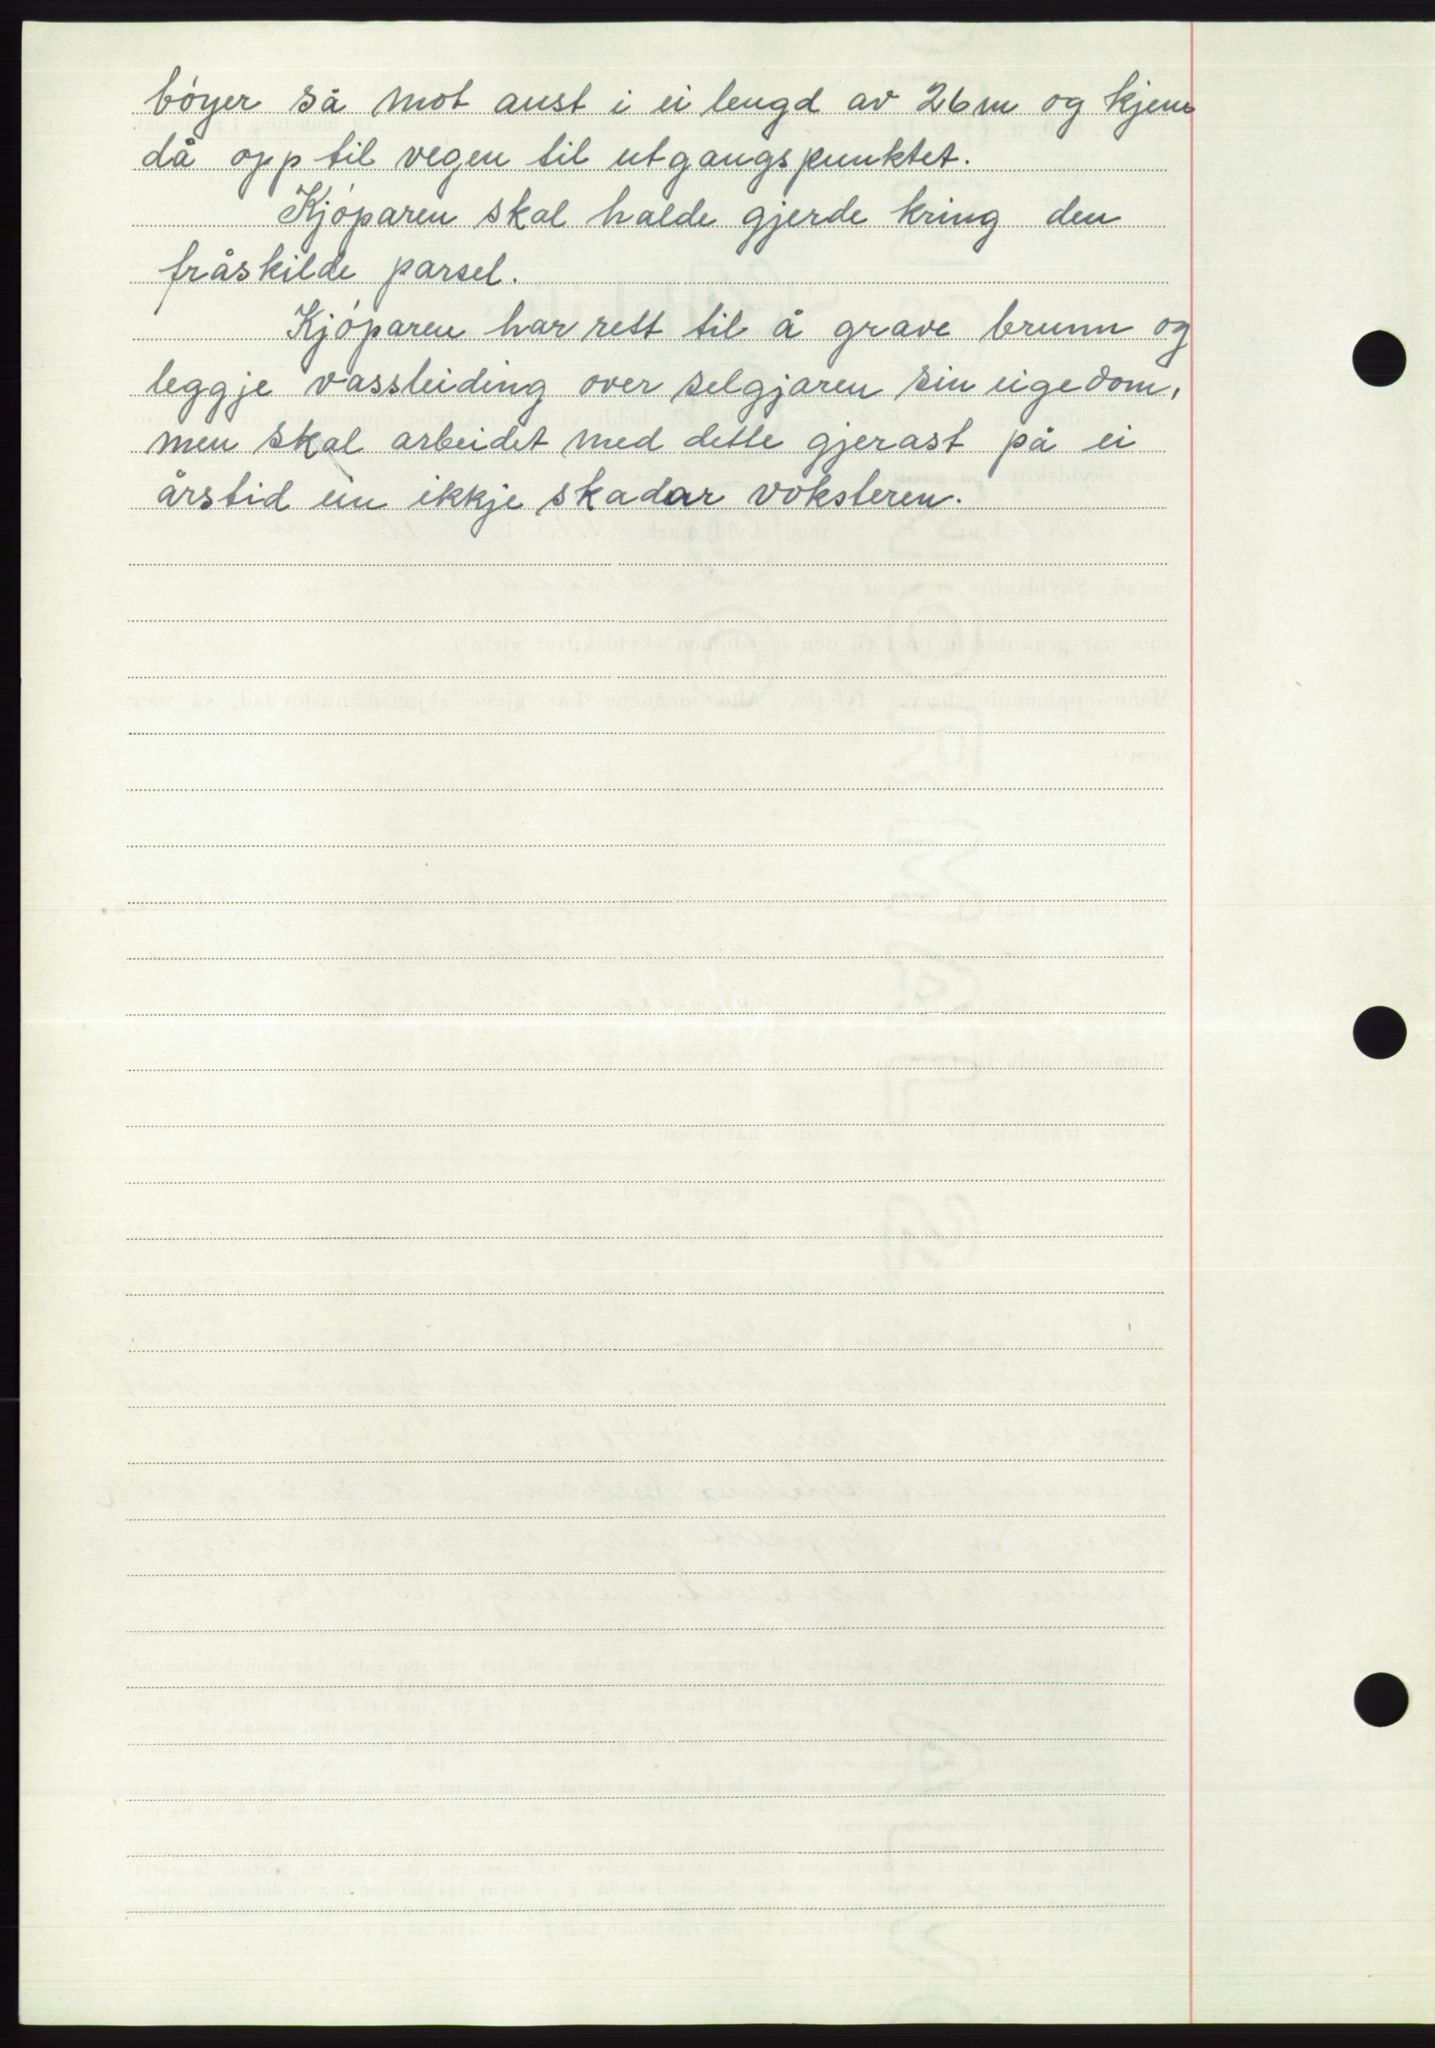 bóyer så mot aust i ei lengd av 26 m og kjem
då opp til vegen til utgangspunktet.
Kjóparen skal halde gjerde kring den
fråskilde parsel.
Kjóparen har rett til å grave brunn og
leggje vassleiding over selgjaren sin eigedom,
men skal arbeidet med dette gjerast på ei
årstid ein ikkje skadar voksteren.